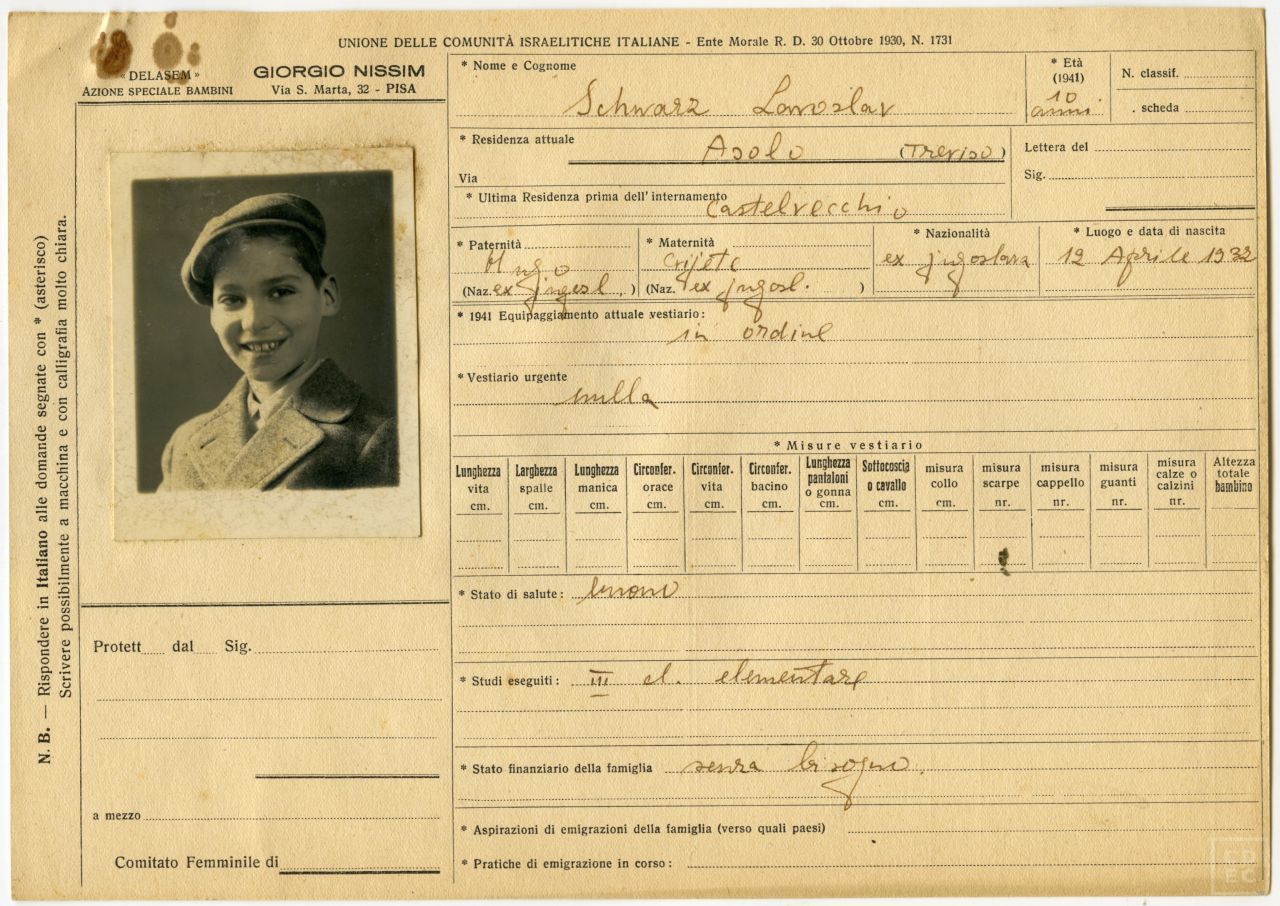 UNIONE DELLE COMUNITÀ ISRAELITICHE ITALIANE - Ente Morale R. D. 30 Ottobre 1930, N. 1731
« DELASEM »
AZIONE SPECIALE BAMBINI
GIORGIO NISSIM
Via S. Marta, 32 - PISA
N. B. — Rispondere in Italiano alle domande segnate con * (asterisco)
Scrivere possibilmente a macchina e con calligrafia molto chiara.
* Nome e Cognome
Schwarz
* Età
(1941)
10
anni
N. classif.
scheda
* Residenza attuale
Asolo (Treviso)
Via
Lettera del
Sig.
* Ultima Residenza prima dell' internamento
Castelvecchio
* Paternità
Hugo
(Naz. ex jugosl. )
* Maternità
(Naz. ex jugosl. )
* Nazionalità
ex jugoslava
* Luogo e data di nascita
12 Aprile 1932
* 1941 Equipaggiamento attuale vestiario:
in ordine
* Vestiario urgente
nulla
* Misure vestiario
Lunghezza vita cm.
Larghezza spalle cm.
Lunghezza manica cm.
Circonfer. orace cm.
Circonfer. vita cm.
Circonfer. bacino cm.
Lunghezza pantaloni o gonna cm.
Sottocoscia o cavallo cm.
misura collo cm.
misura scarpe nr.
misura cappello nr.
misura guanti nr.
misura calze o calzini nr.
Altezza totale bambino
* Stato di salute: buono
* Studi eseguiti: III cl. elementare
* Stato finanziario della famiglia senza bisogno.
* Aspirazioni di emigrazioni della famiglia (verso quali paesi)
* Pratiche di emigrazione in corso :
Protett dal Sig.
a mezzo
Comitato Femminile di
CD
EC